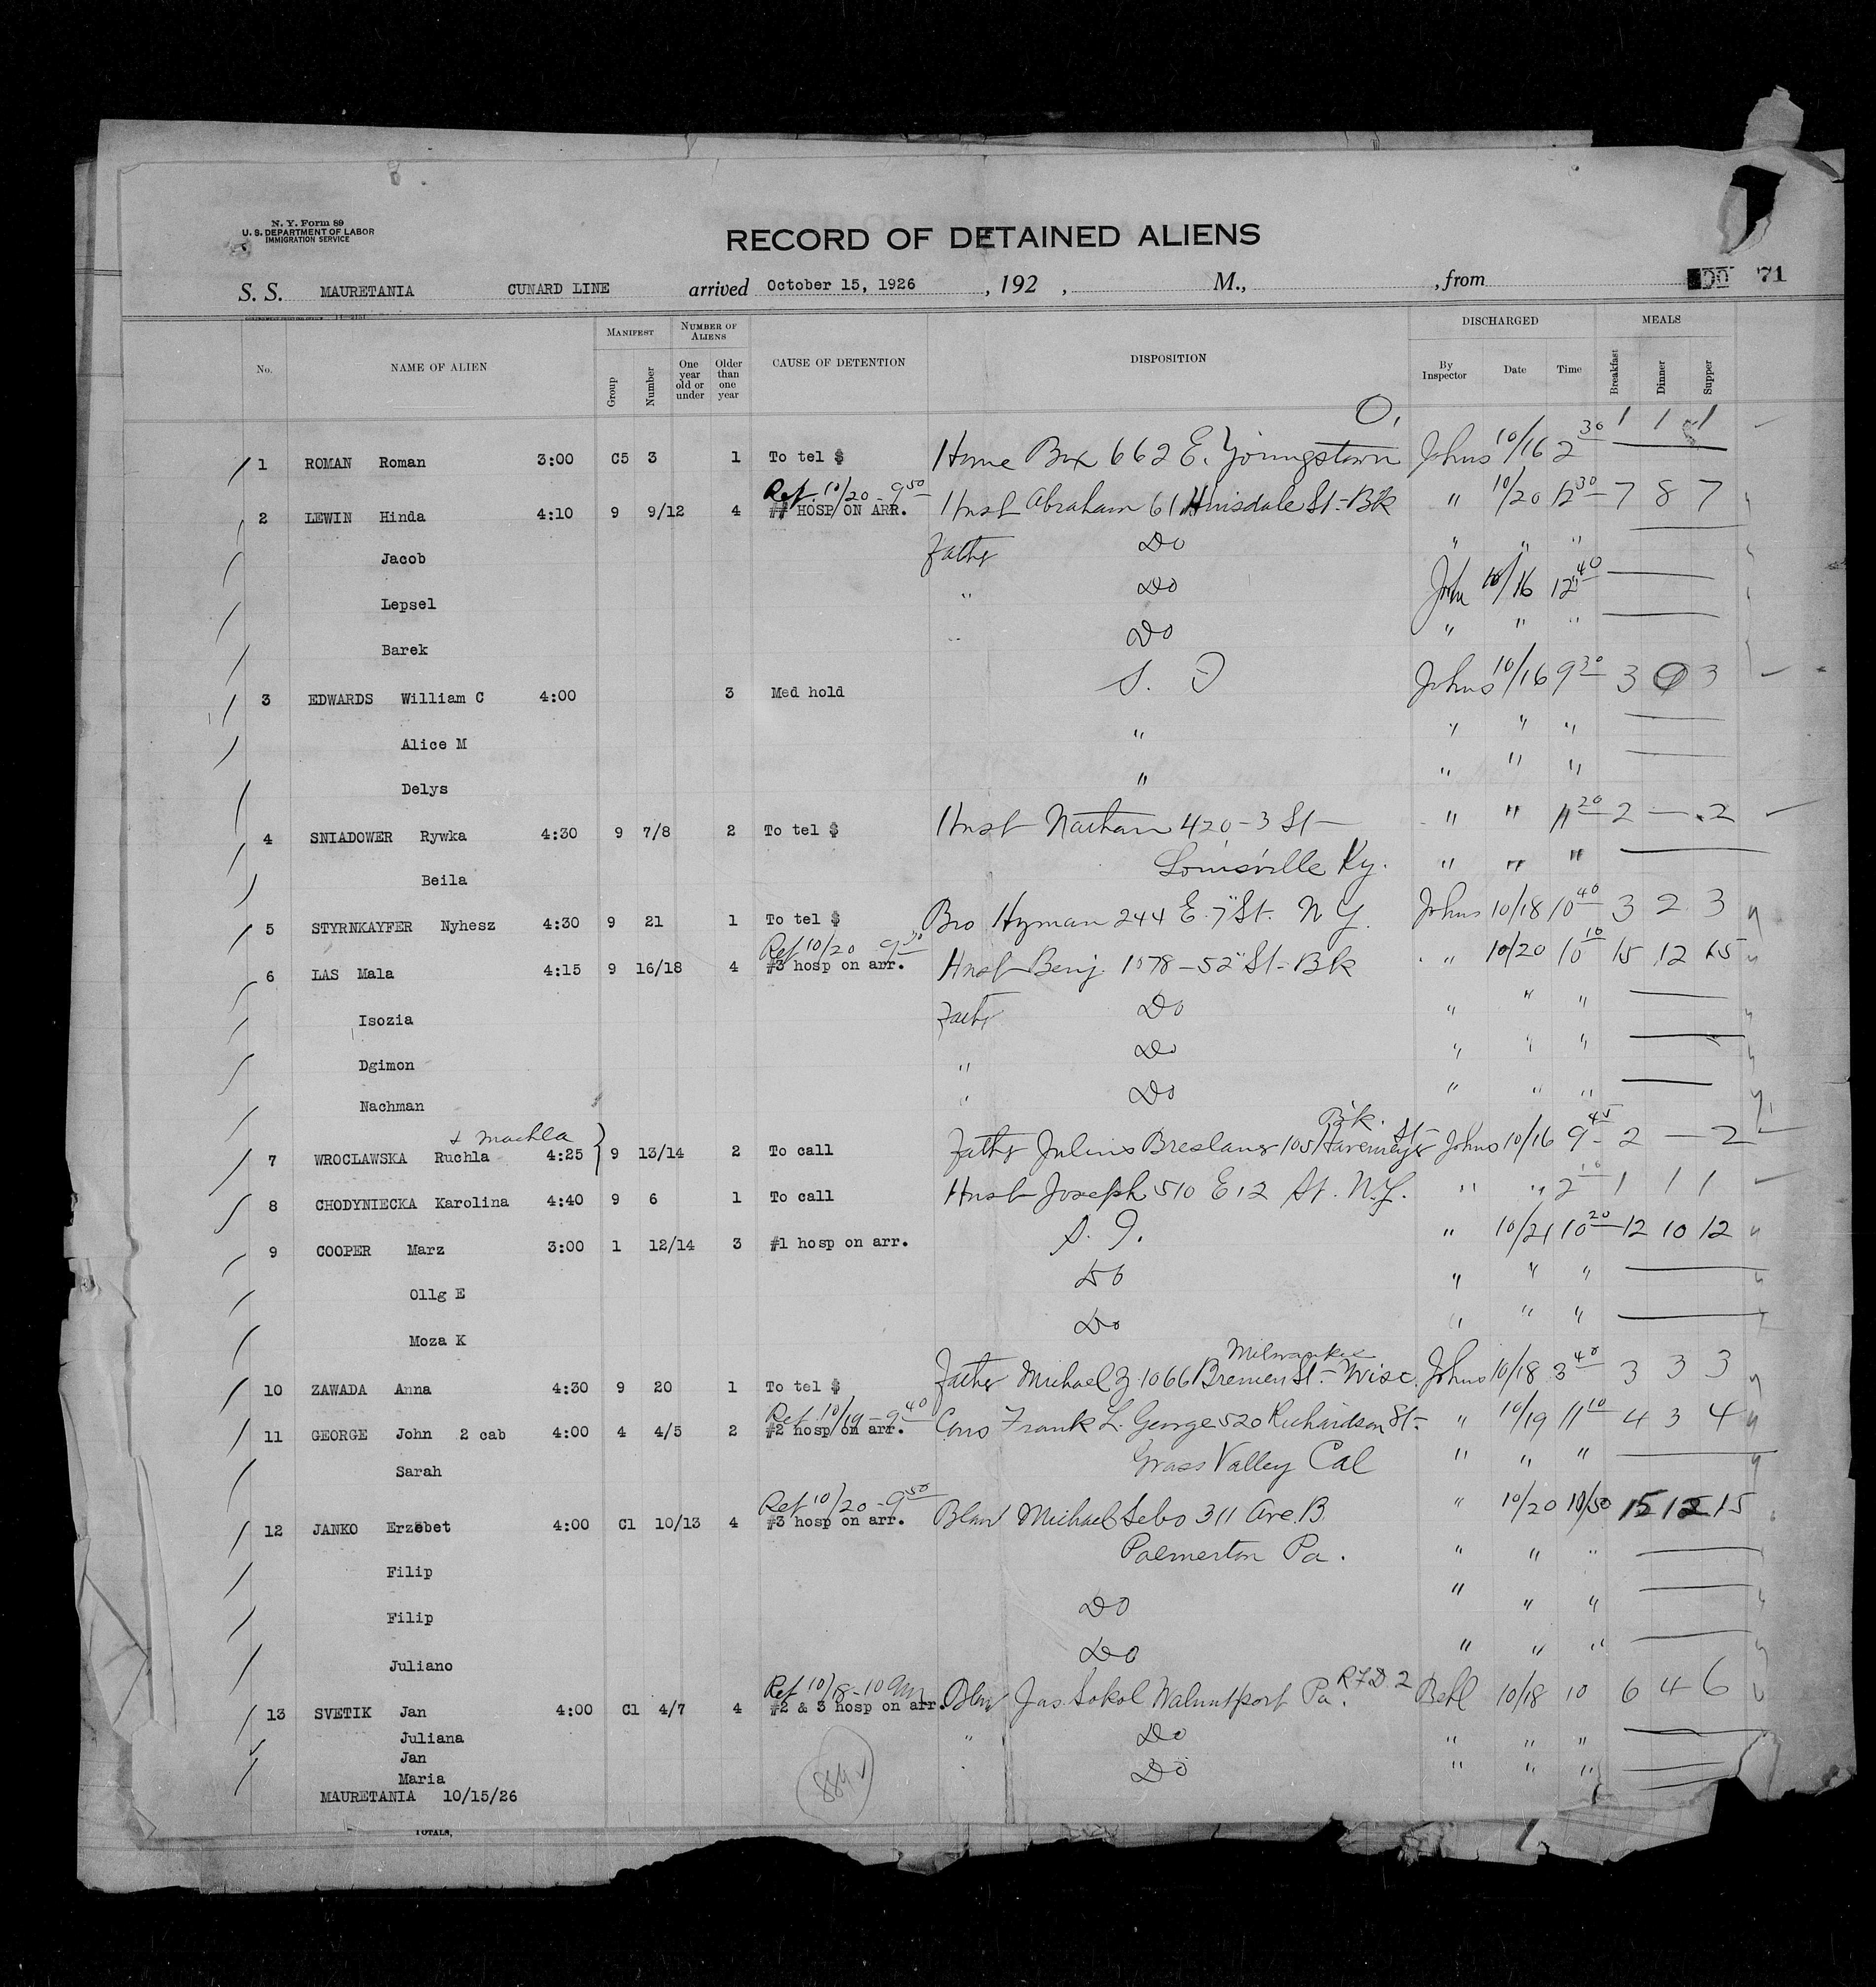 N. Y. Form 89
U. S. DEPARTMENT OF LABOR
IMMIGRATION SERVICE
RECORD OF DETAINED ALIENS
S. S. MAURETANIA CUNARD LINE arrived October 15, 1926 , 192 , M., , from 71
No. NAME OF ALIEN MANIFEST Group Number NUMBER OF ALIENS One year old or under Older than one year CAUSE OF DETENTION DISPOSITION DISCHARGED By Inspector Date Time MEALS Breakfast Dinner Supper
O.
1 ROMAN Roman 3:00 C5 3 1 To tel $ Home Box 662 E. Youngstown Johns 10/16 2 30 1 1 1
Ret. 10/20 - 9 50
2 LEWIN Hinda 4:10 9 9/12 4 HOSP ON ARR. Husb Abraham 61 Hinsdale St - Bk " 10/20 12 30 7 8 7
Jacob Father Do " " "
Lepsel " Do John 10/16 12 40
Barek " Do " " "
3 EDWARDS William C 4:00 3 Med hold S. I Johns 10/16 9 30 3 3
Alice M " " " "
Delys " " " "
4 SNIADOWER Rywka 4:30 9 7/8 2 To tel $ Husb Nathan 420 - 3 St " " 11 20 2 — 2
Beila Louisville Ky. " " "
5 STYRNKAYFER Nyhesz 4:30 9 21 1 To tel $ Bro Hyman 244 E. 7" St. N Y. Johns 10/18 10 40 3 2 3
Ret 10/20 9 30
6 LAS Mala 4:15 9 16/18 4 #3 hosp on arr. Husb Benj. 1078 - 52" St - Bk " 10/20 10 10 15 12 15
Isozia Father Do " " "
Dgimon " Do " " "
Nachman " Do " " "
& Machla Bk.
7 WROCLAWSKA Ruchla 4:25 9 13/14 2 To call Father Julius Breslauer 105 Havemeyer St Johns 10/16 9 45 2 — 2
8 CHODYNIECKA Karolina 4:40 9 6 1 To call Husb Joseph 510 E 12 St. N.Y. " " 2 10 1 1 1
9 COOPER Marz 3:00 1 12/14 3 #1 hosp on arr. S. I. " 10/21 10 20 12 10 12
Ollg E Do " " "
Moza K Do " " "
Milwaukee
10 ZAWADA Anna 4:30 9 20 1 To tel $ Father Michael Z. 1066 Bremen St. - Wisc. Johns 10/18 3 40 3 3 3
Ret. 10/19 - 9 40
11 GEORGE John 2 cab 4:00 4 4/5 2 #2 hosp on arr. Cous Frank L. George 520 Richardson St - " 10/19 11 10 4 3 4
Sarah Grass Valley Cal " " "
Ret 10/20 - 9 50
12 JANKO Erzebet 4:00 C1 10/13 4 #3 hosp on arr. Blaw Michael Sebo 311 Ave. B " 10/20 10/50 15 12 15
Filip Palmerton Pa. " " "
Filip Do " " "
Juliano Do " " "
Ret 10/18 - 10 am R.F.D. 2
13 SVETIK Jan 4:00 C1 4/7 4 #2 & 3 hosp on arr. Blaw Jas. Sokol Walnutport Pa. Behl 10/18 10 6 4 6
Juliana " Do " " "
Jan
Maria " Do " " "
MAURETANIA 10/15/26
TOTALS,